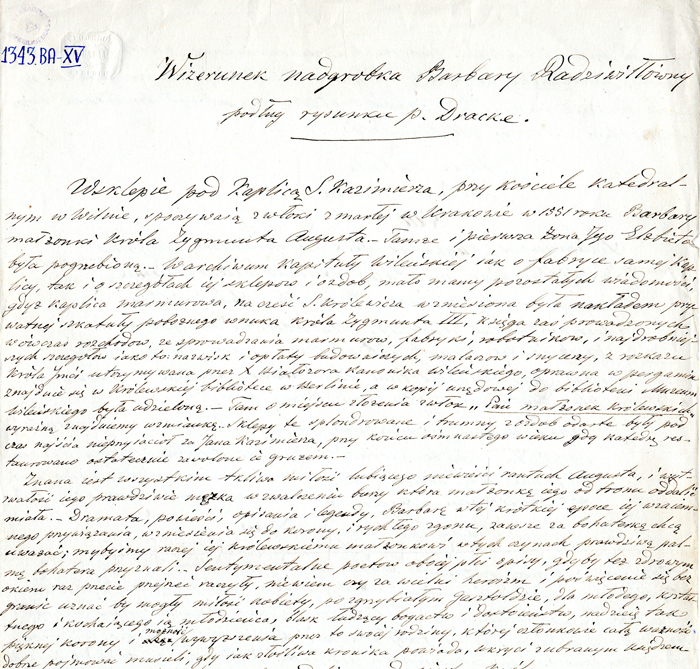 1343.BA-XV
Wizerunek nadgrobka Barbary Radziwiłłówny
podług rysunku p. Dracke.
W sklepie pod Kaplicą S. Kazimierza, przy kościele katedral-
nym w Wilnie, spoczywają zwłoki zmarłej w Krakowie w 1551 roku Barbary
małżonki Króla Zygmunta Augusta. – Tamże i pierwsza żona Jego Elżbieta
była pogrebioną. – W archiwum Kapituły Wileńskiej jak o fabryce samej Kap-
licy, tak i o szczegółach jej sklepów i ozdob, mało mamy pozostałych wiadomości
gdyż Kaplica marmurowa, na cześć S. Królewicza wzniesiona była nakładem pry-
watnej szkatuły pobożnego wnuka, króla Zygmunta III, księga zaś prowadzonych
wówczas rozchodów, ze sprowadzania marmurów, fabryki, robotników, i najdrobniej-
szych szczegółów jako to nazwisk i opłaty budowniczych, malarzów i snycerzy, z rozkazu
Króla Jmci utrzymywana przez X. kanonika wileńskiego, oprawna w pergamin
znajduje się w Królewskiej bibliotece w Berlinie, a w kopij urzędowej do biblioteki Muzeum
Wileńskiego była udzieloną. – Tam o miejscu złożenia zwłok „Pań małżonek Królewskich
wyraźną znajdujemy wzmiankę. Sklepy te splondrowane i trumny z ozdob odarte były pod-
czas najścia nieprzyjaciół za Jana Kazimierza, przy końcu ośmnastego wieku gdy katedrę res-
taurowano ostatecznie zawalone są gruzem. –
Znana jest wszystkim tkliwa miłość lubiącego niewieści Augusta, i wyt-
rwałość jego prawdziwie męzka w zwalczeniu bony która małżonkę jego od tronu oddalić
miała. – Dramata, powieści, opisania i legendy, Barbarę w tej krótkiej epoce jej wzajem-
nego przywiązania, wzniesienia się do korony, i rychłego zgonu, zawsze za bohaterkę chcą
uważać; mybyśmy raczej jej królewskiemu małżonkowi w tych czynach prawdziwą pal-
mę bohatera przyznali. – Sentymentalne poetów obojej płci śpiewy, gdyby też zdrowym
okiem raz przecie przejrzeć raczyły, niewiem czy za wielki heroizm i poświęcenie się bez
granic uznać by mogły miłość kobiety, po zgrzybiałym Gasztołdzie, dla młodego, kształ-
tnego i kochającego ją młodzieńca, blask łudzący bogactw i dostojeństw, nadzieję tak
pięknej korony i możność wywyższenia przez to swojej rodziny, której członkowie całą ważność
dobrze pojmować musieli, gdy jak złośliwa kronika powiada, ukryci z ubranym